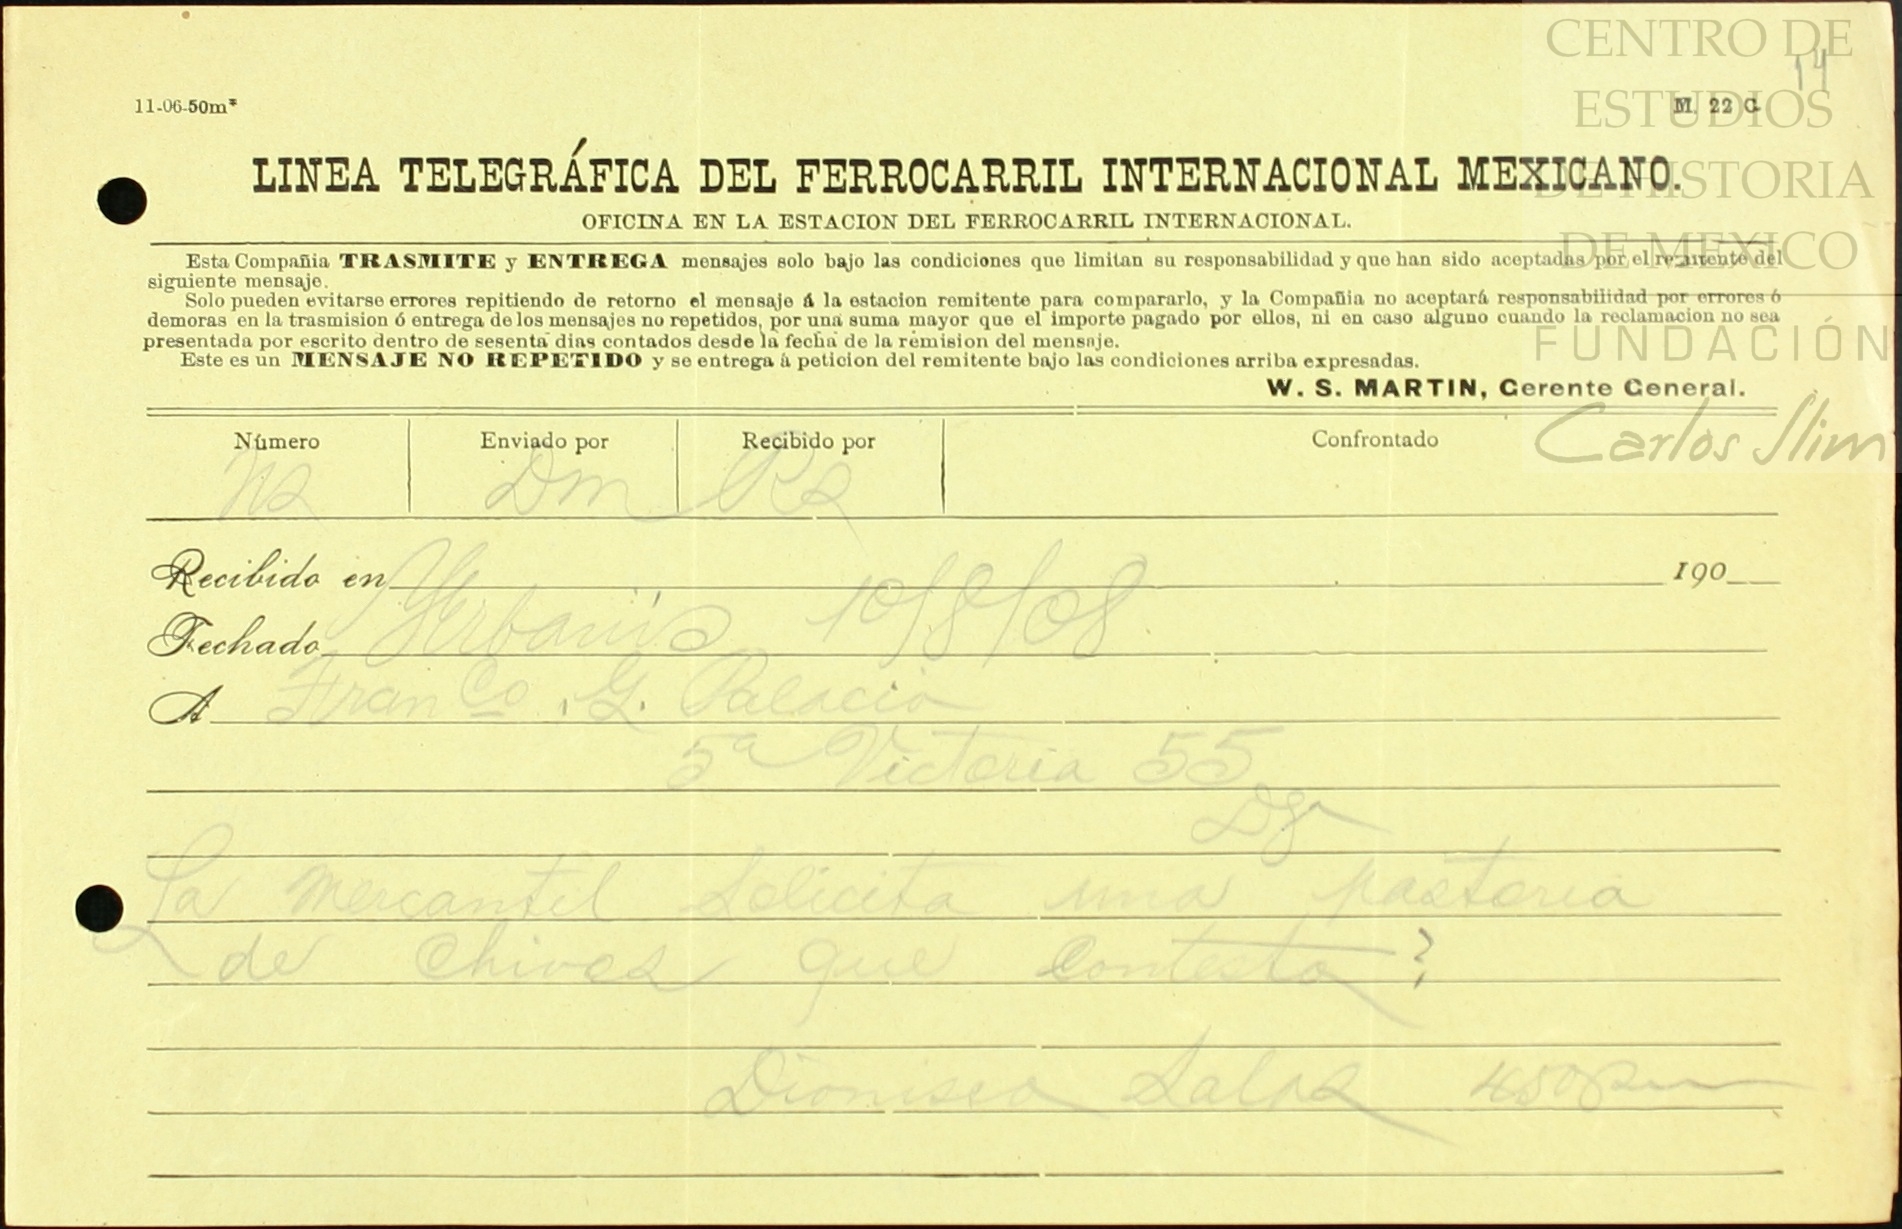 CENTRO DE
ESTUDIOS
DE HISTORIA
DE MEXICO
FUNDACIÓN
Carlos Slim
14
11-06-50m*
M. 22 C.
LINEA TELEGRÁFICA DEL FERROCARRIL INTERNACIONAL MEXICANO.
OFICINA EN LA ESTACION DEL FERROCARRIL INTERNACIONAL.
Esta Compañia TRASMITE y ENTREGA mensajes solo bajo las condiciones que limitan su responsabilidad y que han sido aceptadas por el remitente del
siguiente mensaje.
Solo pueden evitarse errores repitiendo de retorno el mensaje á la estacion remitente para compararlo, y la Compañia no aceptará responsabilidad por errores ó
demoras en la trasmision ó entrega de los mensajes no repetidos, por una suma mayor que el importe pagado por ellos, ni en caso alguno cuando la reclamacion no sea
presentada por escrito dentro de sesenta dias contados desde la fecha de la remision del mensaje.
Este es un MENSAJE NO REPETIDO y se entrega á peticion del remitente bajo las condiciones arriba expresadas.
W. S. MARTIN, Gerente General.
Número Enviado por Recibido por Confrontado
Dm
Recibido en 190
Fechado Yerbanis 10/8/08
A Franco. G. Palacio
5a Victoria 55
La mercantil solicita una pastoria
de chivas que contesto?
Dionisio Salas 450pm